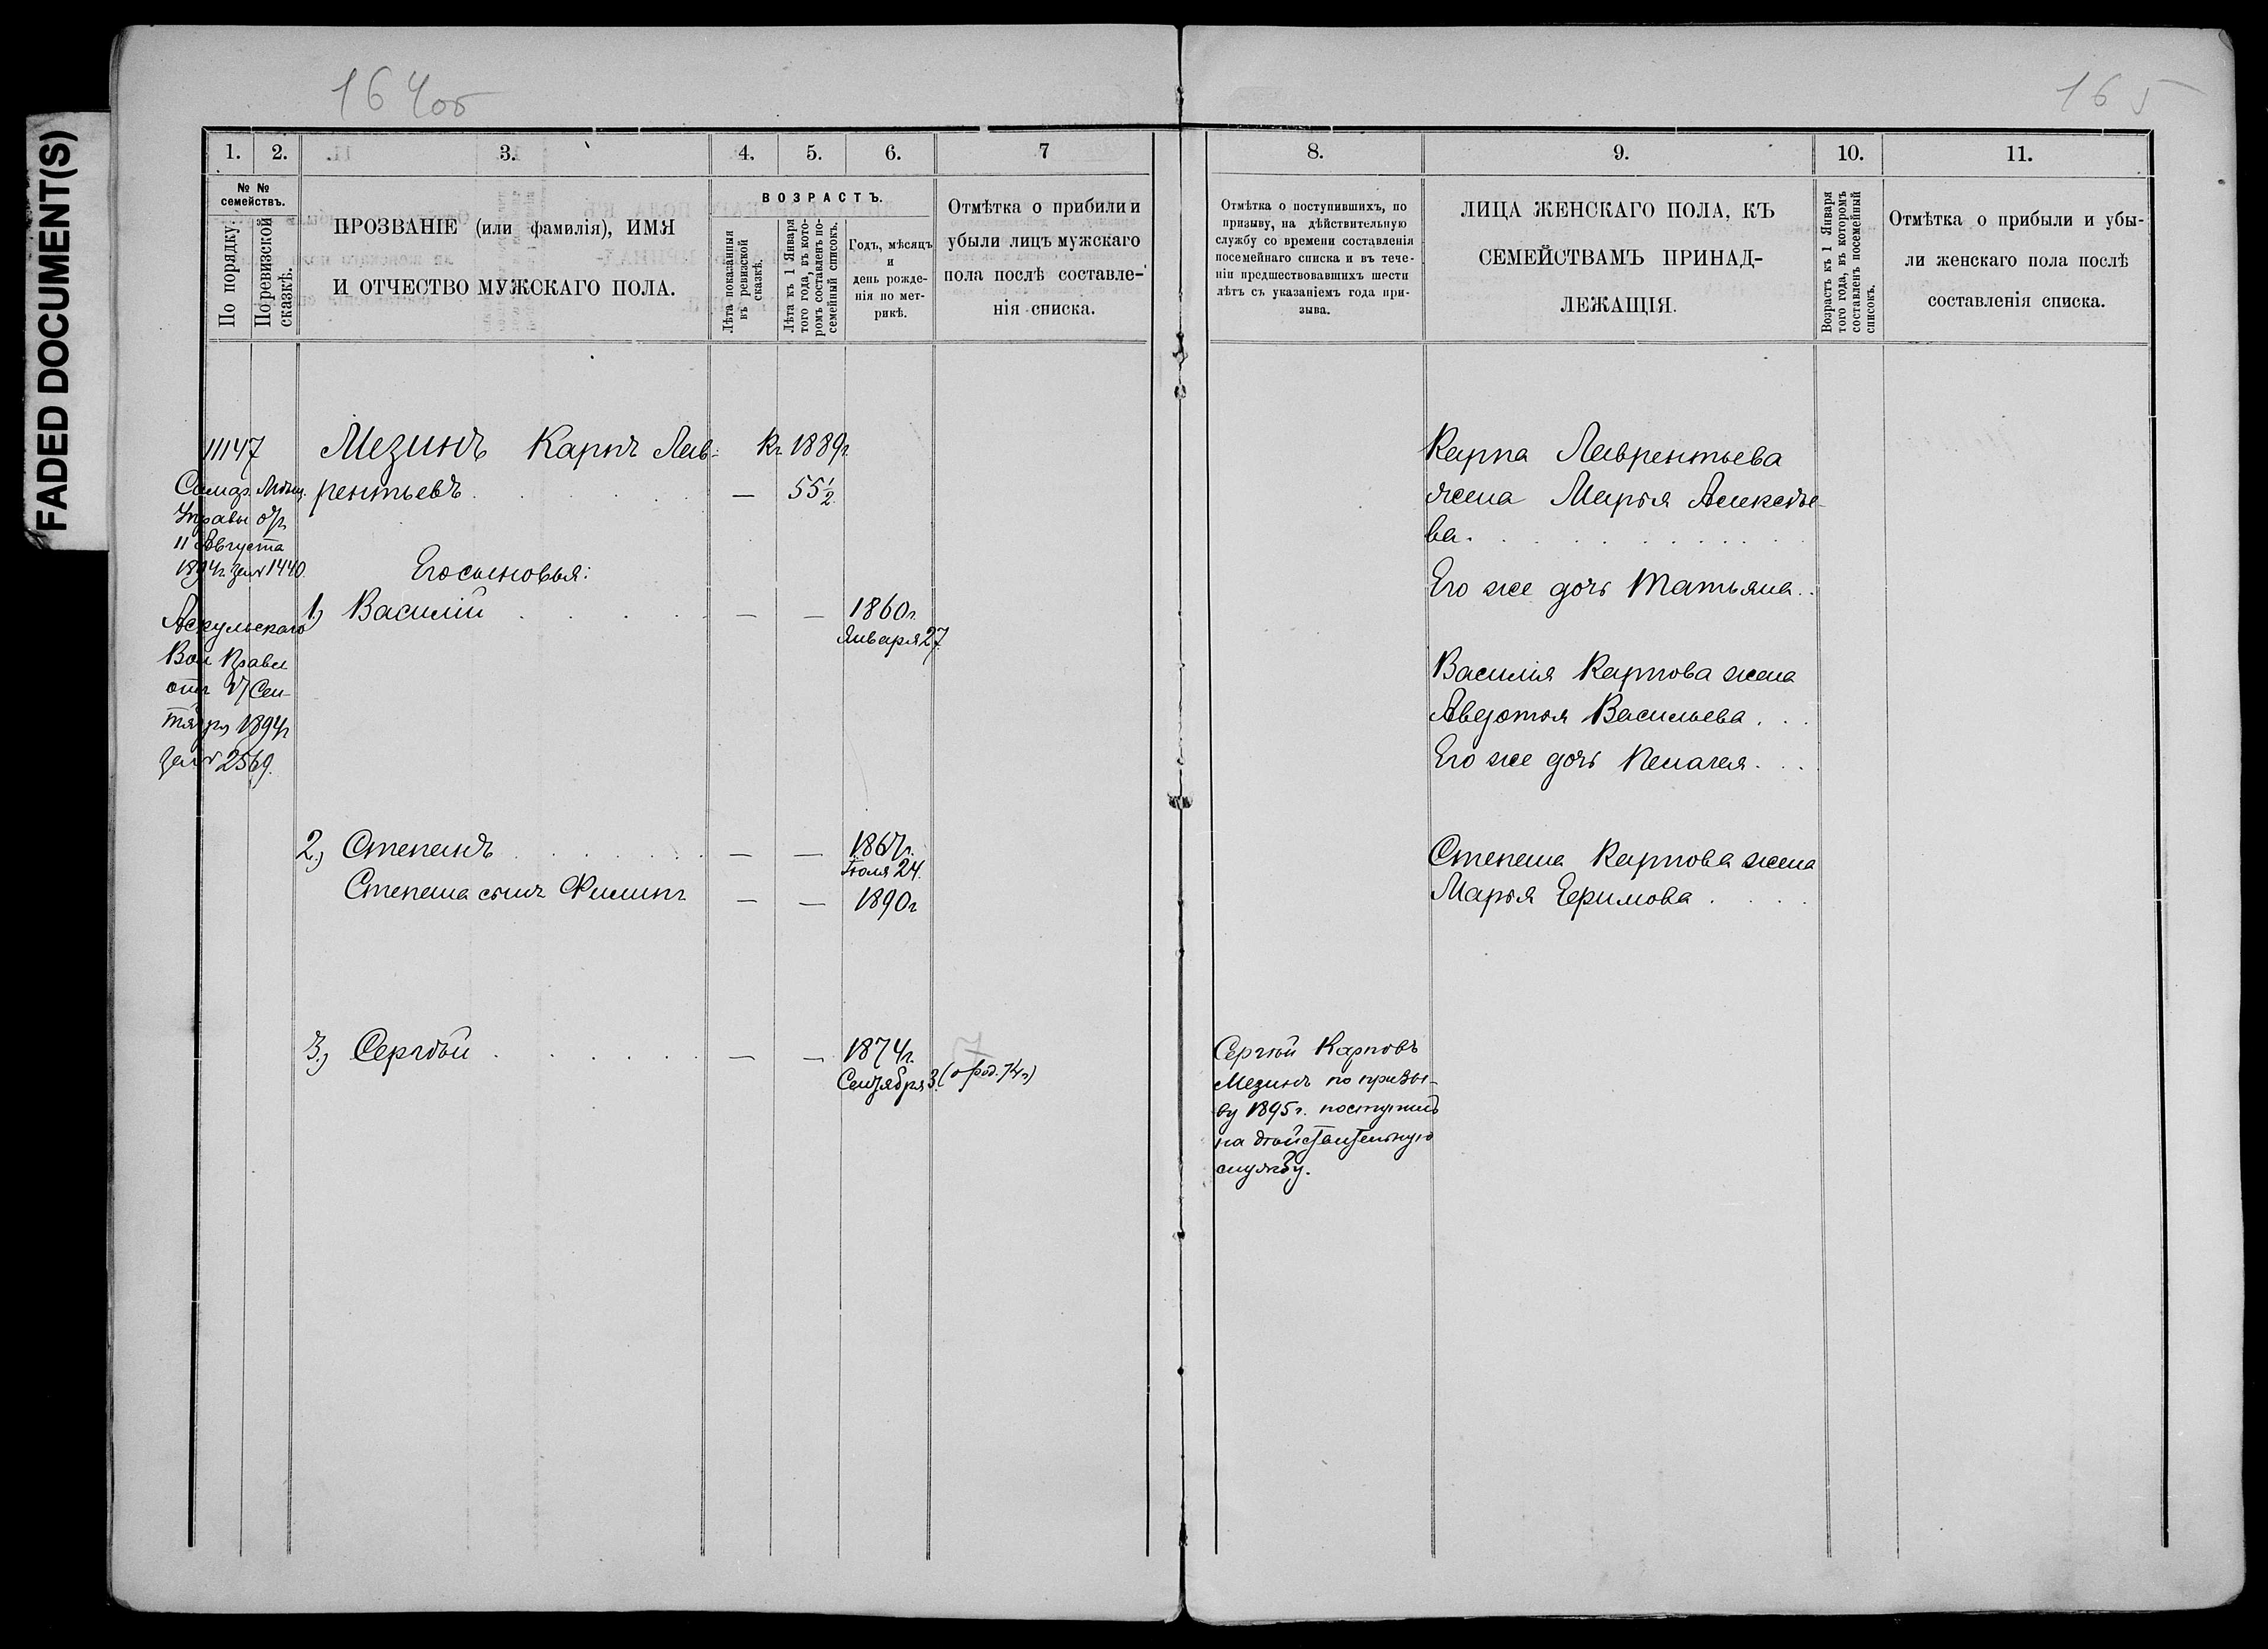 FADED DOCUMENT(S)
164об
165
1. 2. 3. 4. 5. 6. 7
№ №
семействъ.
По порядку.
По ревизской
сказкѣ.
ПРОЗВАНІЕ (или фамилія), ИМЯ
И ОТЧЕСТВО МУЖСКАГО ПОЛА.
ВОЗРАСТЪ.
Лѣта показанныя
въ ревизской
сказкѣ.
Лѣта къ 1 Января
того года, въ кото-
ромъ составленъ по-
семейный списокъ.
Годъ, мѣсяцъ
и
день рожде-
нія по мет-
рикѣ.
Отмѣтка о прибыли и
убыли лицъ мужскаго
пола послѣ составле-
нія списка.
11147
Самар. Мѣщ.
Управы от
11 Августа
1894г. за № 1440.
Аскульскаго
Вол Правл
отъ 17 Сен-
тября 1894г
за № 2569.
Мезинъ Карпъ Лав-
рентьевъ — Къ 1889г.
55½
Его сыновья:
1) Василій — — 1860г.
Января 27
2) Степанъ — — 1867г.
Іюля 24.
Степана сынъ Филипъ — — 1890г
3) Сергѣй — — 1874г.
Сентября 3. (о род. 74г)
8. 9. 10. 11.
Отмѣтка о поступившихъ, по
призыву, на дѣйствительную
службу со времени составленія
посемейнаго списка и въ тече-
ніи предшествовавшихъ шести
лѣтъ съ указаніемъ года при-
зыва.
ЛИЦА ЖЕНСКАГО ПОЛА, КЪ
СЕМЕЙСТВАМЪ ПРИНАД-
ЛЕЖАЩІЯ.
Возрастъ къ 1 Января
того года, въ которомъ
составленъ посемейный
списокъ.
Отмѣтка о прибыли и убы-
ли женскаго пола послѣ
составленія списка.
Карпа Лаврентьева
жена Марья Алексѣе-
ва.
Его же дочь Татьяна.
Василія Карпова жена
Авдотья Васильева
Его же дочь Пелагея.
Степана Карпова жена
Марья Ефимова
Сергѣй Карповъ
Мезинъ по призы-
ву 1895г. поступилъ
на дѣйствительную
службу.